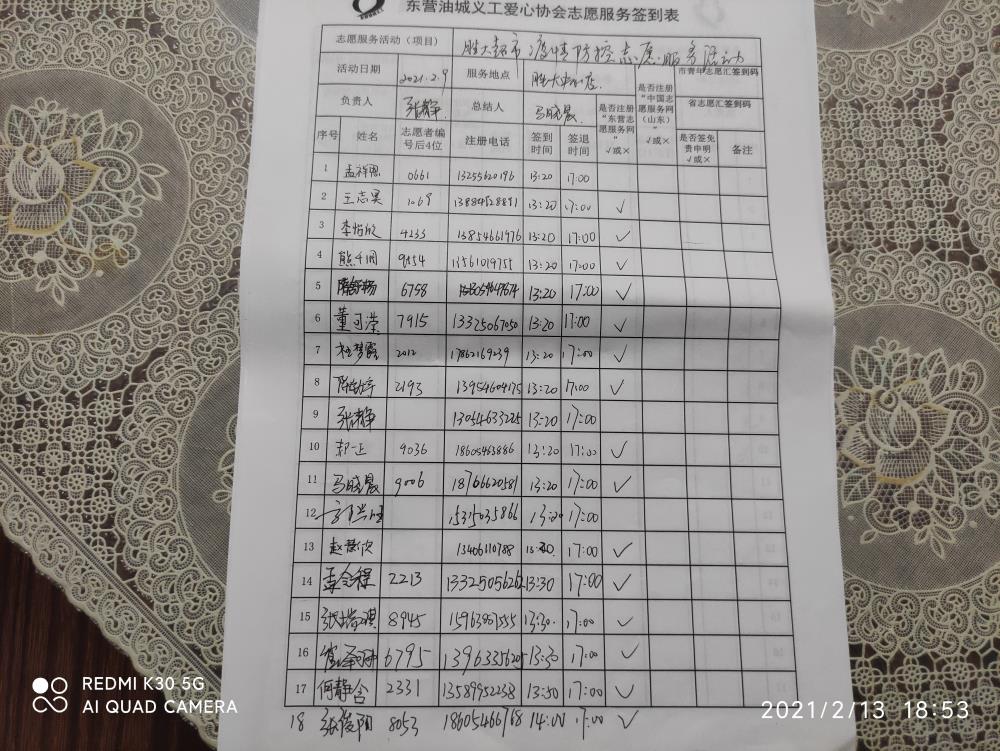 东营油城义工爱心协会志愿服务签到表
志愿服务活动（项目） 胜大超市疫情防控志愿服务活动
活动日期 2021.2.9 服务地点 胜大 店 是否注册“中国志愿服务网（山东）”√或× 市青年志愿汇签到码
负责人 张静 总结人 马晓晨 是否注册“东营志愿服务网”√或× 省志愿汇签到码
序号 姓名 志愿者编号后4位 注册电话 签到时间 签退时间 是否签免责申明√或× 备注
1 孟祥 0661 13255620196 13:20 17:00
2 王志昊 1069 13884528891 13:20 17:00 √
3 李怡欣 4233 13854661976 13:20 17:00 √
4 熊 9454 13561019755 13:20 17:00 √
5 6758 13:20 17:00 √
6 董可滢 7915 13325067050 13:20 17:00 √
7 杜梦露 2012 17862169239 13:20 17:00 √
8 陈 2193 13954604175 13:20 17:00 √
9 张静 13054633225 13:20 17:00
10 郭一正 9036 18605463886 13:20 17:00 √
11 马晓晨 9006 18766620581 13:20 17:00 √
12 15315035866 13:20 17:00
13 赵 欣 13466110788 17:00 √
14 李令程 2213 13325056262 13:30 17:00 √
15 张瑞祺 8945 15963007555 13:30 17:00 √
16 6795 13963356205 13:30 17:00 √
17 何静含 2331 13589952238 13:50 17:00 √
18 张俊阳 8053 18605466768 14:00 17:00 √
REDMI K30 5G
AI QUAD CAMERA
2021/2/13 18:53